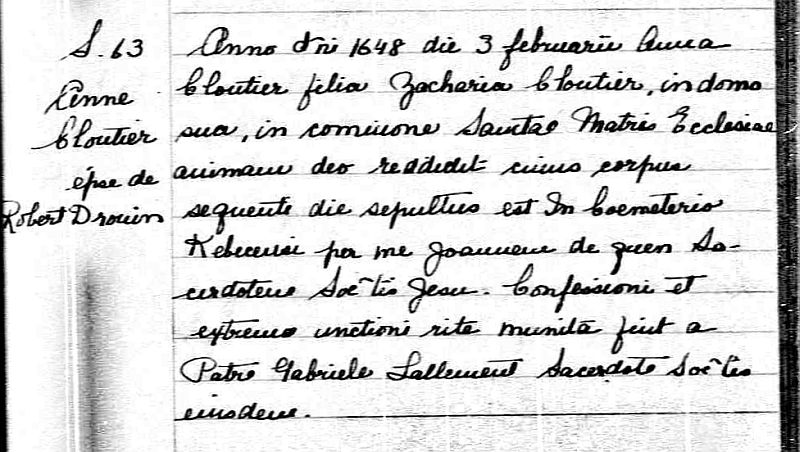 S. 63
Anne
Cloutier
épse de
Robert Drouin
Anno dni 1648 die 3 februarii Anna
Cloutier filia Zacharia Cloutier, in domo
sua, in comiuone Sanctae Matris Ecclesiae
animam deo reddidit cuius corpus
sequente die sepultus est In Coemeterio
Kebecensi per me Joannem de quen Sa-
cerdotem Soc~tis Jesu. Confessioni et
extremo unctioni rite munita fuit a
Patre Gabriele Lallement Sacerdote Soc~tis
eiusdem.